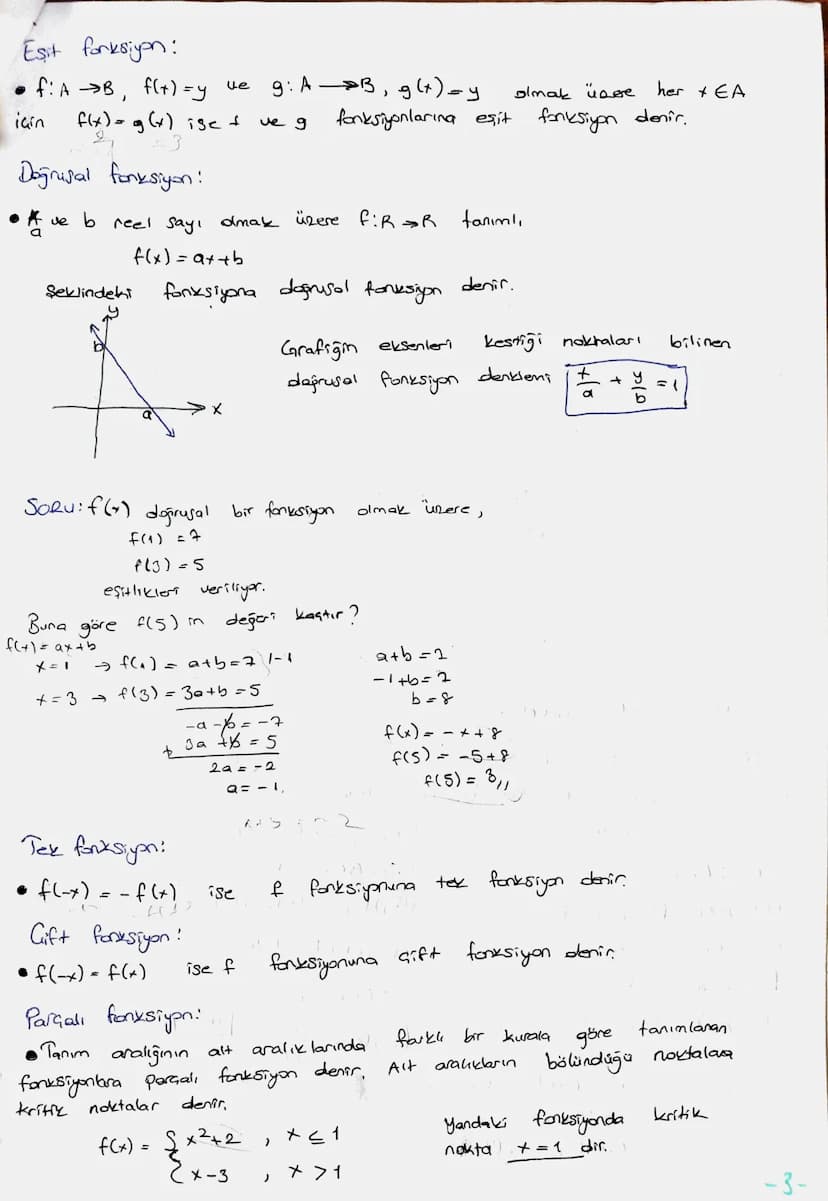 Eşit fonksiyon:
• f: A → B, f(x) = y ve g: A → B, g(x) = y olmak üzere her x ∈ A
için f(x) = g(x) ise f ve g fonksiyonlarına eşit fonksiyon denir.
Doğrusal fonksiyon:
• a ve b reel sayı olmak üzere f: R → R tanımlı,
f(x) = ax+b
şeklindeki fonksiyona doğrusal fonksiyon denir.
y
b
a
x
Grafiğin eksenleri kestiği noktaları bilinen
doğrusal fonksiyon denklemi x/a + y/b = 1
SORU: f(x) doğrusal bir fonksiyon olmak üzere,
f(1) = 7
f(3) = 5
eşitlikleri veriliyor.
Buna göre f(5) in değeri kaçtır?
f(x) = ax+b
x = 1 → f(1) = a+b = 7 /-1
x = 3 → f(3) = 3a+b = 5
-a - b = -7
+ 3a + b = 5
2a = -2
a = -1
a+b = 7
-1+b = 7
b = 8
f(x) = -x+8
f(5) = -5+8
f(5) = 3//
Tek fonksiyon:
• f(-x) = -f(x) ise f fonksiyonuna tek fonksiyon denir.
Çift fonksiyon:
• f(-x) = f(x) ise f fonksiyonuna çift fonksiyon denir.
Parçalı fonksiyon:
• Tanım aralığının alt aralıklarında farklı bir kurala göre tanımlanan
fonksiyonlara parçalı fonksiyon denir. Alt aralıkların bölündüğü noktalara
kritik noktalar denir.
f(x) = { x²+2 , x ≤ 1
x-3 , x > 1
Yandaki fonksiyonda kritik
nokta x = 1 dir.
-3-